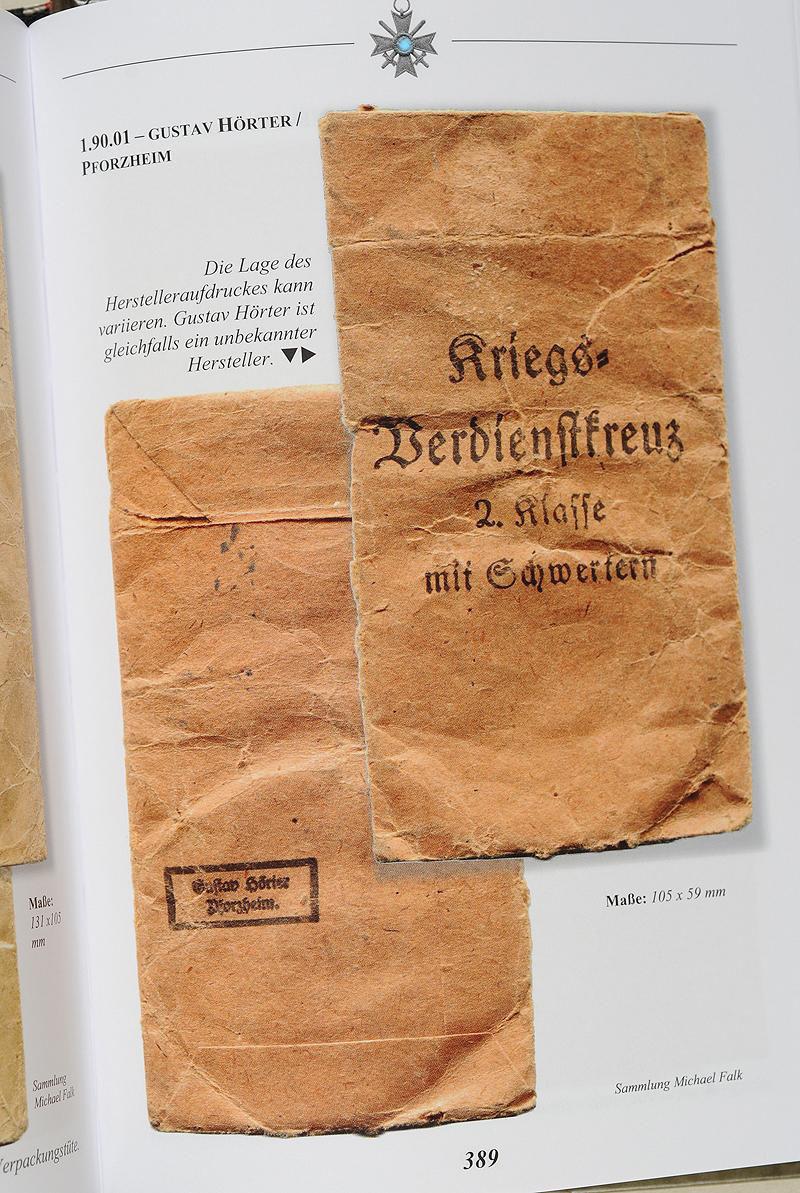 1.90.01 – GUSTAV HÖRTER /
PFORZHEIM
Die Lage des
Herstelleraufdruckes kann
variieren. Gustav Hörter ist
gleichfalls ein unbekannter
Hersteller. ▼▶
Kriegs=
Verdienstkreuz
2. Klasse
mit Schwertern
Gustav Hörter
Pforzheim.
Maße: 105 x 59 mm
Sammlung Michael Falk
389
Maße:
131 x105
mm
Sammlung
Michael Falk
Verpackungstüte.